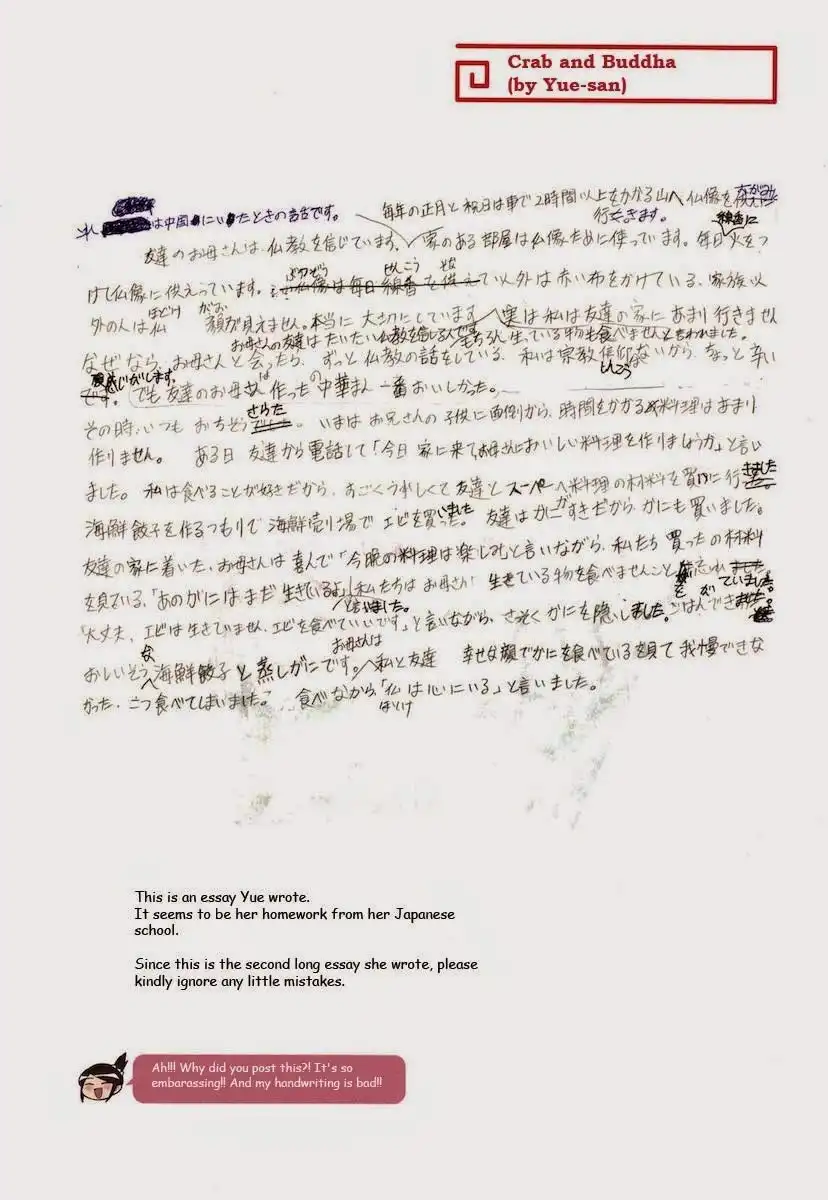 Crab and Buddha
(by Yue-san)
は中国にいたときの話です。
毎年の正月と祝日は車で2時間以上をかかる山へ仏像を
行きます。
線香に
友達のお母さんは仏教を信じています。家のある部屋は仏像ために使っています。毎日火をつ
ぶつぞう せんこう そな
けし仏像に供えっています。仏像は毎日線香を供えて以外は赤い布をかけている。家族以
ほとけ がお
外の人は仏 顔が見えません。本当に大切にしています。実は私は友達の家にあまり行きません
お母さんの友達はたいたい仏教を信じるんです。もちろん生っている物も食べませんと言われました。
なぜなら、お母さんと会ったら、ずっと仏教の話をしている、私は宗教信仰ないから、ちょっと辛い
感じがします。
しんこう
です。でも友達のお母さん作ったの中華まん一番おいしかった。
さらた
その時、いつもおちそう。いまはお兄さんの子供に面倒から、時間をかかる料理はあまり
作りません。 ある日 友達から電話して「今日家に来てお母さんにおいしい料理を作りましょうか」と言い
ました。私は食べることが好きだから、すごくうれしくて友達とスーパーへ料理の材料を買いに行
きました
海鮮餃子を作るつもりで海鮮売り場でエビを買いました。友達はかにがすきだから、かにも買いました。
友達の家に着いた、お母さんは喜んで「今晩の料理は楽しむと言いながら、私たち買ったの材料
を見ている、「あのかにはまだ生きているよ」私たちはお母さん 生きている物を食べませんこと を忘れ
ていました。
と言いました。
「大丈夫、エビは生きていません、エビを食べていいです」と言いながら、さそくかにを隠しました。ごはんでき
お母さんは
な
おしいそう海鮮餃子と蒸しがにです。私と友達 幸せな顔でかにを食べているを見て我慢できな
かった、二つ食べてしまいました。 食べなから「仏は心にいる」と言いました。
ほとけ
This is an essay Yue wrote.
It seems to be her homework from her Japanese
school.
Since this is the second long essay she wrote, please
kindly ignore any little mistakes.
Ah!!! Why did you post this?! It's so
embarassing!! And my handwriting is bad!!